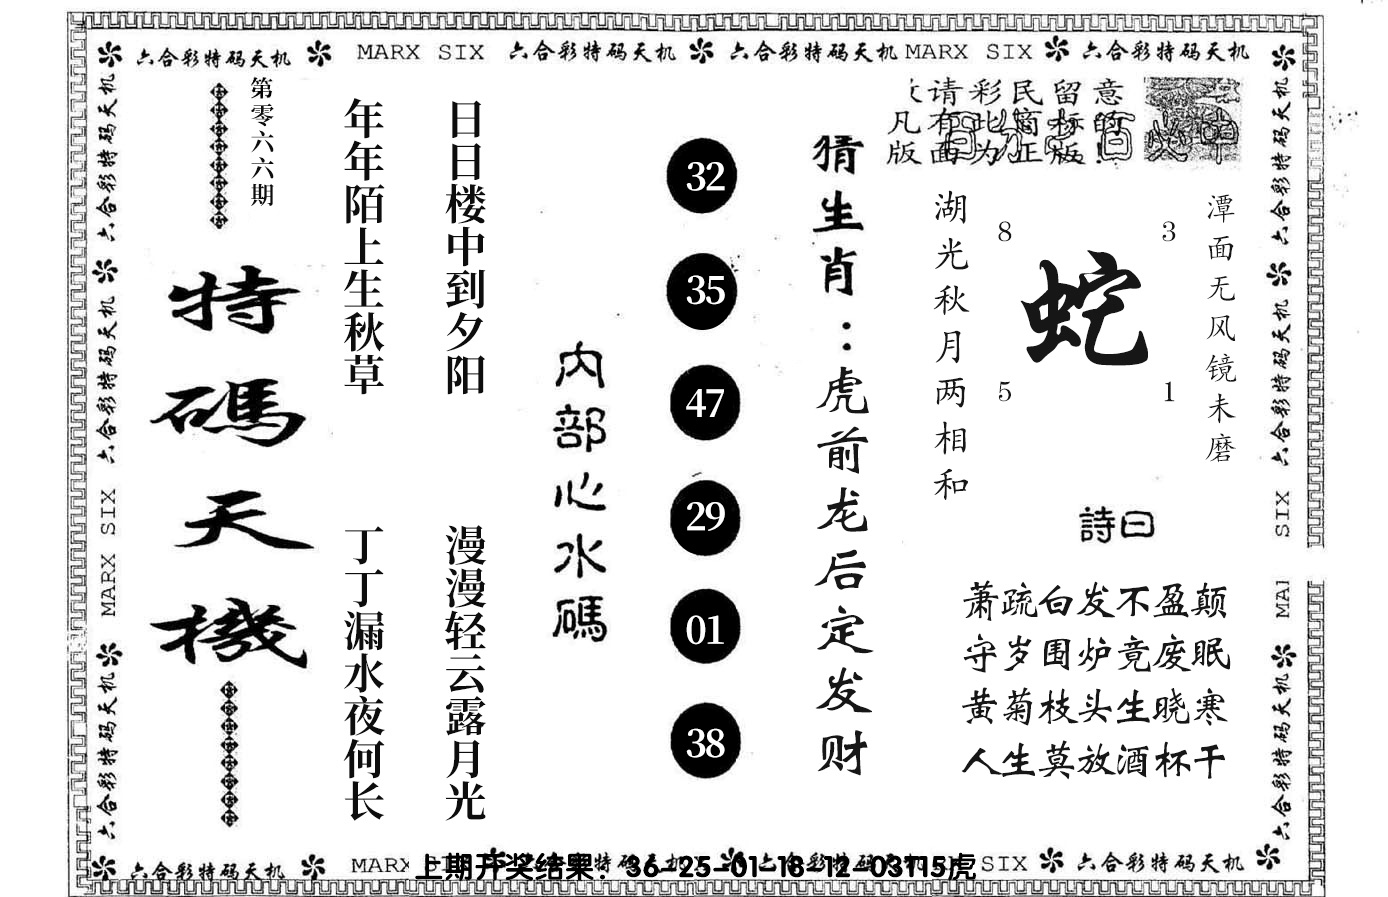 六合彩特码天机 MARX SIX 六合彩特码天机 六合彩特码天机 MARX SIX 六合彩特码天机
六合彩特码天机 六合彩特码天机 MARX SIX 六合彩特码天机
第零六六期
特碼天機
年年陌上生秋草
丁丁漏水夜何长
日日楼中到夕阳
漫漫轻云露月光
内部心水碼
32
35
47
29
01
38
猜生肖:虎前龙后定发财
请彩民留意
凡有此商标的
版面为正版!
湖光秋月两相和
潭面无风镜未磨
8
3
蛇
5
1
詩曰
萧疏白发不盈颠
守岁围炉竟废眠
黄菊枝头生晓寒
人生莫放酒杯干
六合彩特码天机 六合彩特码天机 SIX 六合彩特码天机
六合彩特码天机 MARX
上期开奖结果：36-25-01-18-12-03T15虎
SIX 六合彩特码天机